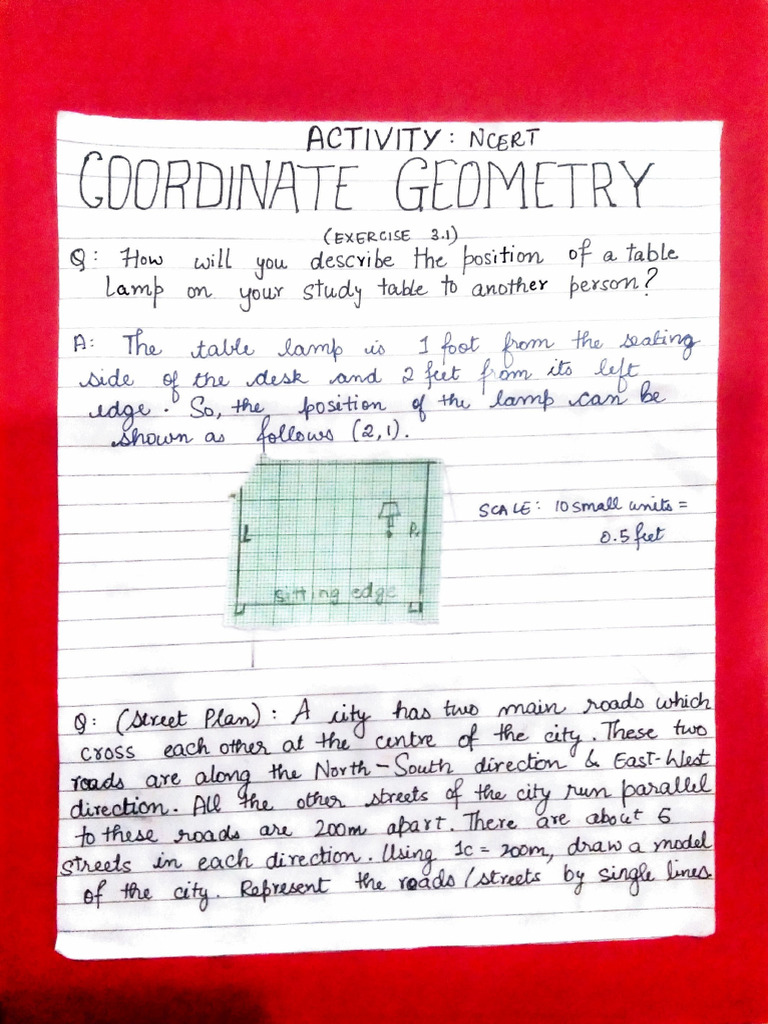 ACTIVITY: NCERT
COORDINATE GEOMETRY
(EXERCISE 3.1)
Q: How will you describe the position of a table
Lamp on your study table to another person?
A: The table lamp is 1 foot from the seating
side of the desk and 2 feet from its left
edge. So, the position of the lamp can be
shown as follows (2,1).
SCALE: 10 small units =
0.5 feet
L
sitting edge
Q: (Street Plan): A city has two main roads which
cross each other at the centre of the city. These two
roads are along the North-South direction & East-West
direction. All the other streets of the city run parallel
to these roads are 200m apart. There are about 5
streets in each direction. Using 1c = 200m, draw a model
of the city. Represent the roads/streets by single lines